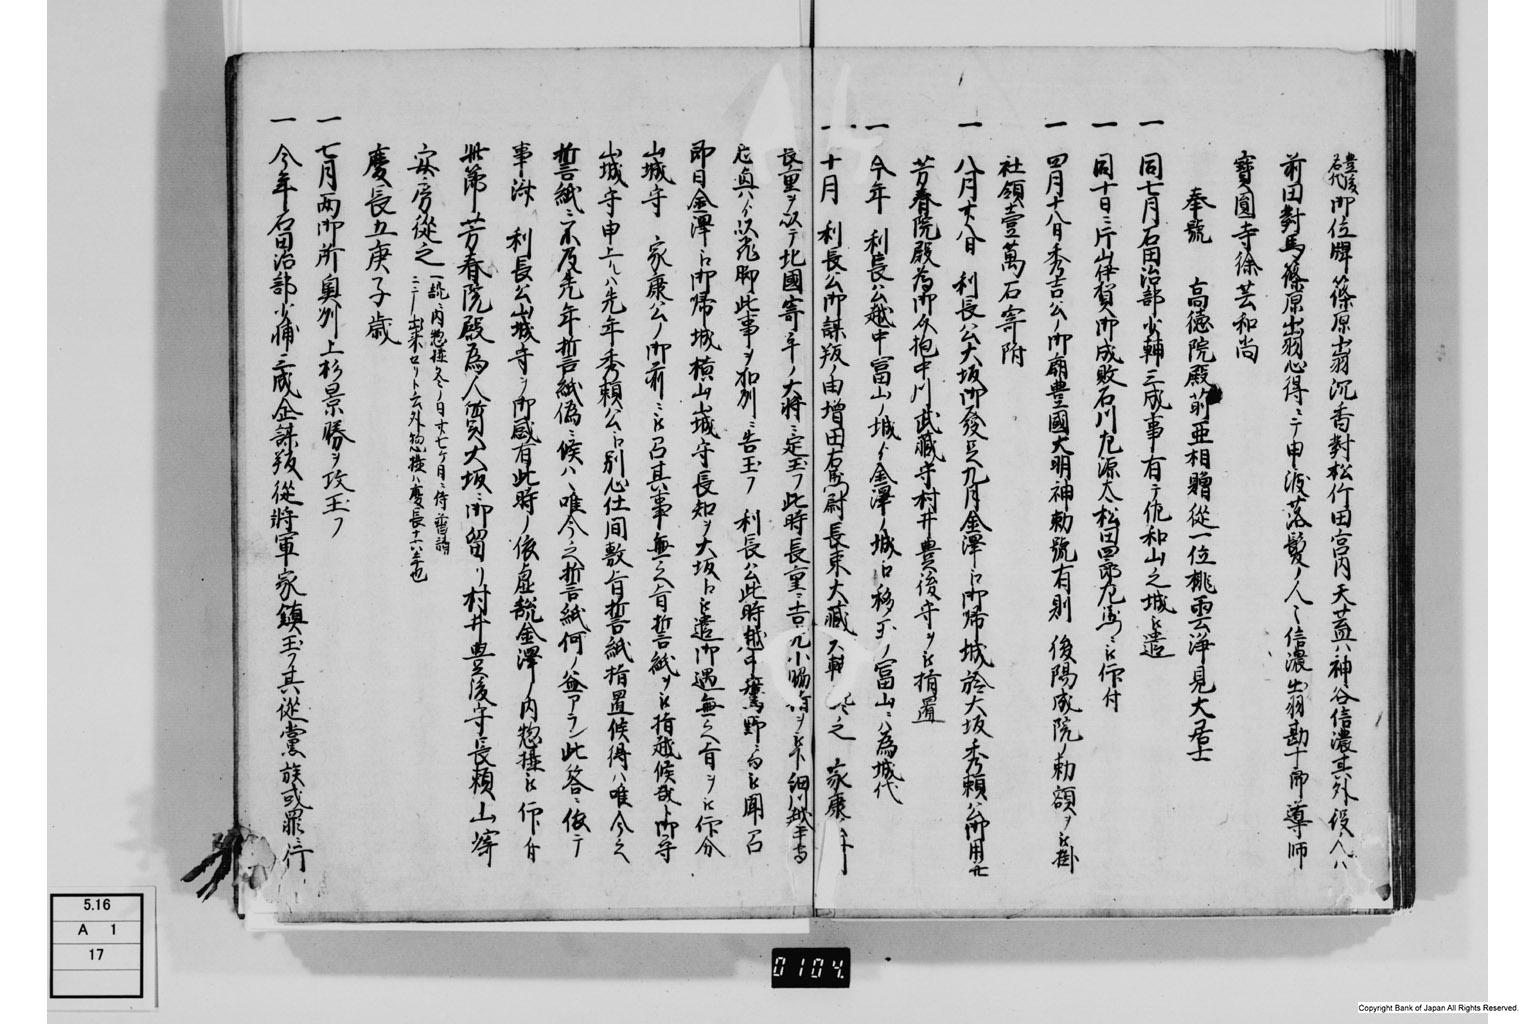 御位牌篠原出羽沉香對松竹田宮内天蓋ハ神谷信濃其外役人ハ
前田對馬篠原出羽心得ニテ申渡落髪ノ人々信濃出羽勘十郎導師
寶圓寺徐芸和尚
奉號 高德院殿前亜相贈從一位桃雲淨見大居士
一 同七月石田治部少輔三成事有テ佐和山之城ヘ遣
一 同十日ニ片山伊賀御成敗石川左源太松田四郎左衛門ニ被仰付
一 四月十八日秀吉公ノ御廟豊國大明神勅號有則 後陽成院ノ勅額ヲ被掛
社領壹萬石寄附
一 八月廿八日 利長公大坂御發足九月金澤ヘ御帰城於大坂秀頼公御用并
芳春院殿為御介抱中川武藏守村井豊後守ヲ被指置
一 今年 利長公越中富山ノ城ゟ金澤ノ城ヘ移玉ノ富山ニハ為城代
一 十月 利長公御謀叛ノ由増田右衛門尉長束大藏大輔 之 家康
長重ヲ以テ北國寄手ノ大将ニ定玉フ此時長重ニ吉光小脇指ヲ被下細川越中守
忠興ハゟ以飛脚此事ヲ加州ニ告玉フ 利長公此時越中鷹野ニ而被聞召
即日金澤ヘ御帰城横山山城守長知ヲ大坂ヘ被遣御過無之旨ヲ被仰分
山城守 家康公ノ御前ニ被召其事無之旨誓紙ヲ被指越候哉ト御尋
山城守申上ルハ先年秀頼公ヘ別心仕間敷旨誓紙指置候得ハ唯今之
誓紙ニ不及先年誓紙偽ニ候ハヽ唯今之誓紙何ノ益アラン此答ニ依テ
事済 利長公山城守ヲ御感有此時ノ依虚説金澤ノ内惣搆被仰付
此節芳春院殿為人質大坂ニ御留リ村井豊後守長頼山崎
安房從之 一説内惣搆冬ノ日廿七ケ日ニ侍普請
ニテ出来セリト云外惣搆ハ慶長十六年也
慶長五庚子歳
一 七月両御所奥州上杉景勝ヲ攻玉フ
一 今年石田治部少輔三成企謀叛從將軍家鎮玉フ其從黨族或罪ニ行
5.16
A 1
17
0104
Copyright Bank of Japan All Rights Reserved.